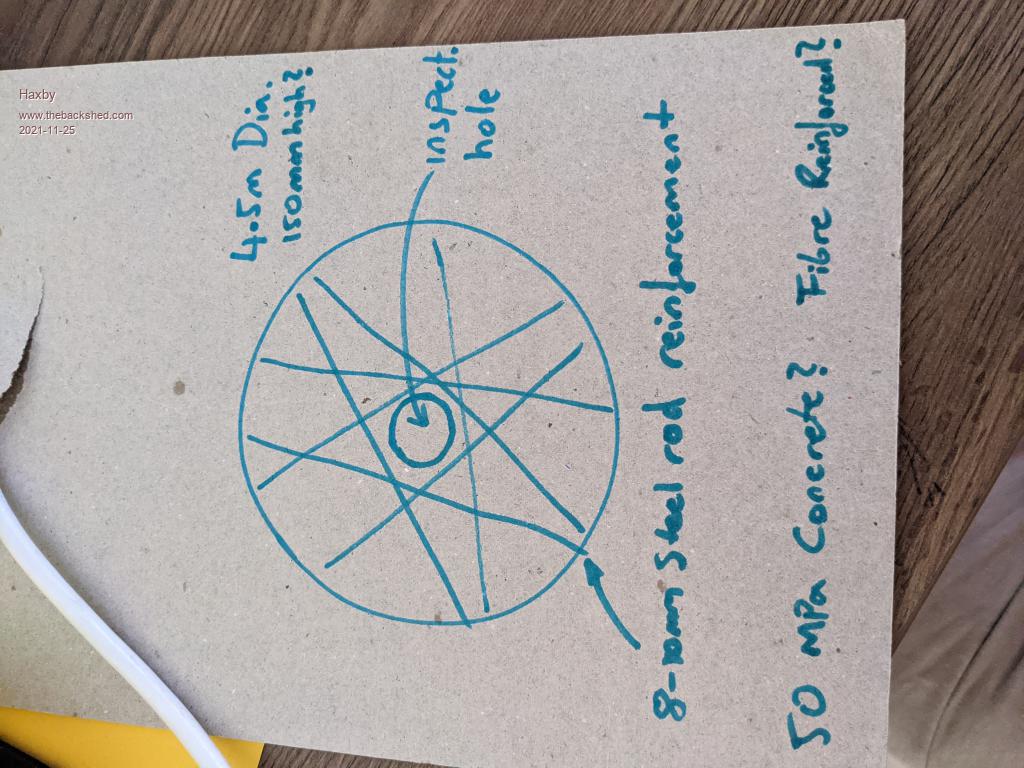 Haxby
www.thebackshed.com
2021-11-25
4.5m Dia.
150mm high?
inspect.
hole
8-10mm Steel rod reinforcement
50 MPa Concrete? Fibre Reinforced?